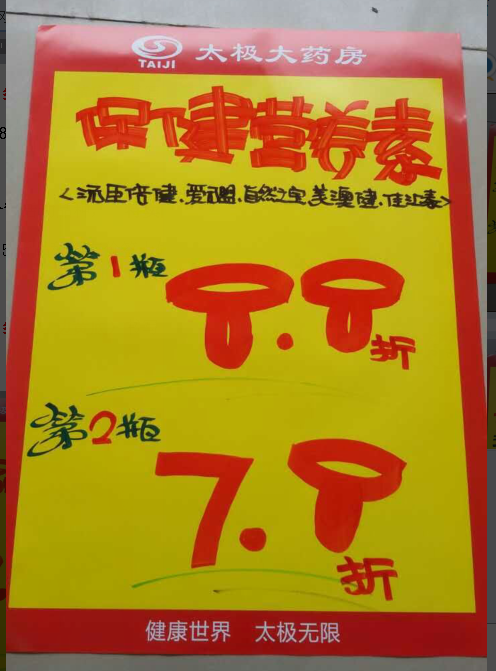 TAIJI 太极大药房
保健营养素
<汤臣倍健.爱司盟.自然之宝.美澳健.佳汇泰>
第1瓶
8.8折
第2瓶
7.8折
健康世界 太极无限